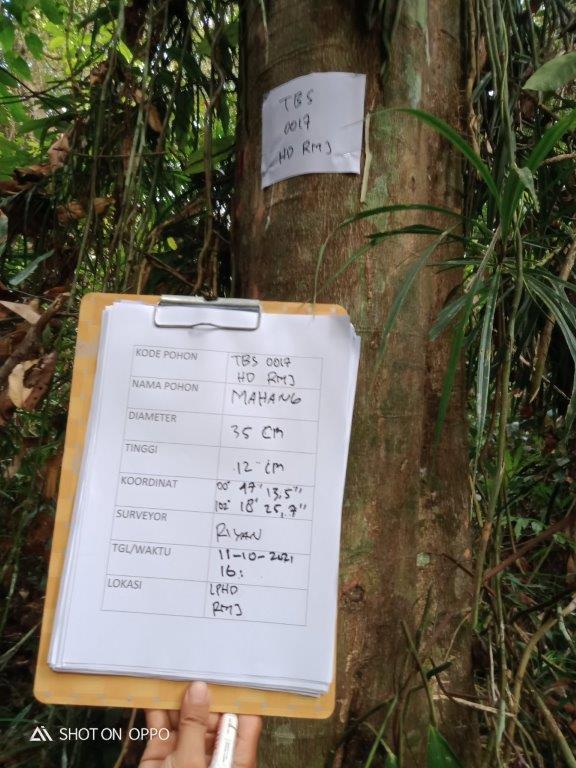 TBS
0017
HD RMJ
KODE POHON TBS 0017
HD RMJ
NAMA POHON MAHANG
DIAMETER 35 CM
TINGGI 12 cm
KOORDINAT 00° 47' 13,5"
102° 18' 25,7"
SURVEYOR RIYAN
TGL/WAKTU 11-10-2021
16:
LOKASI LPHD
RMJ
SHOT ON OPPO